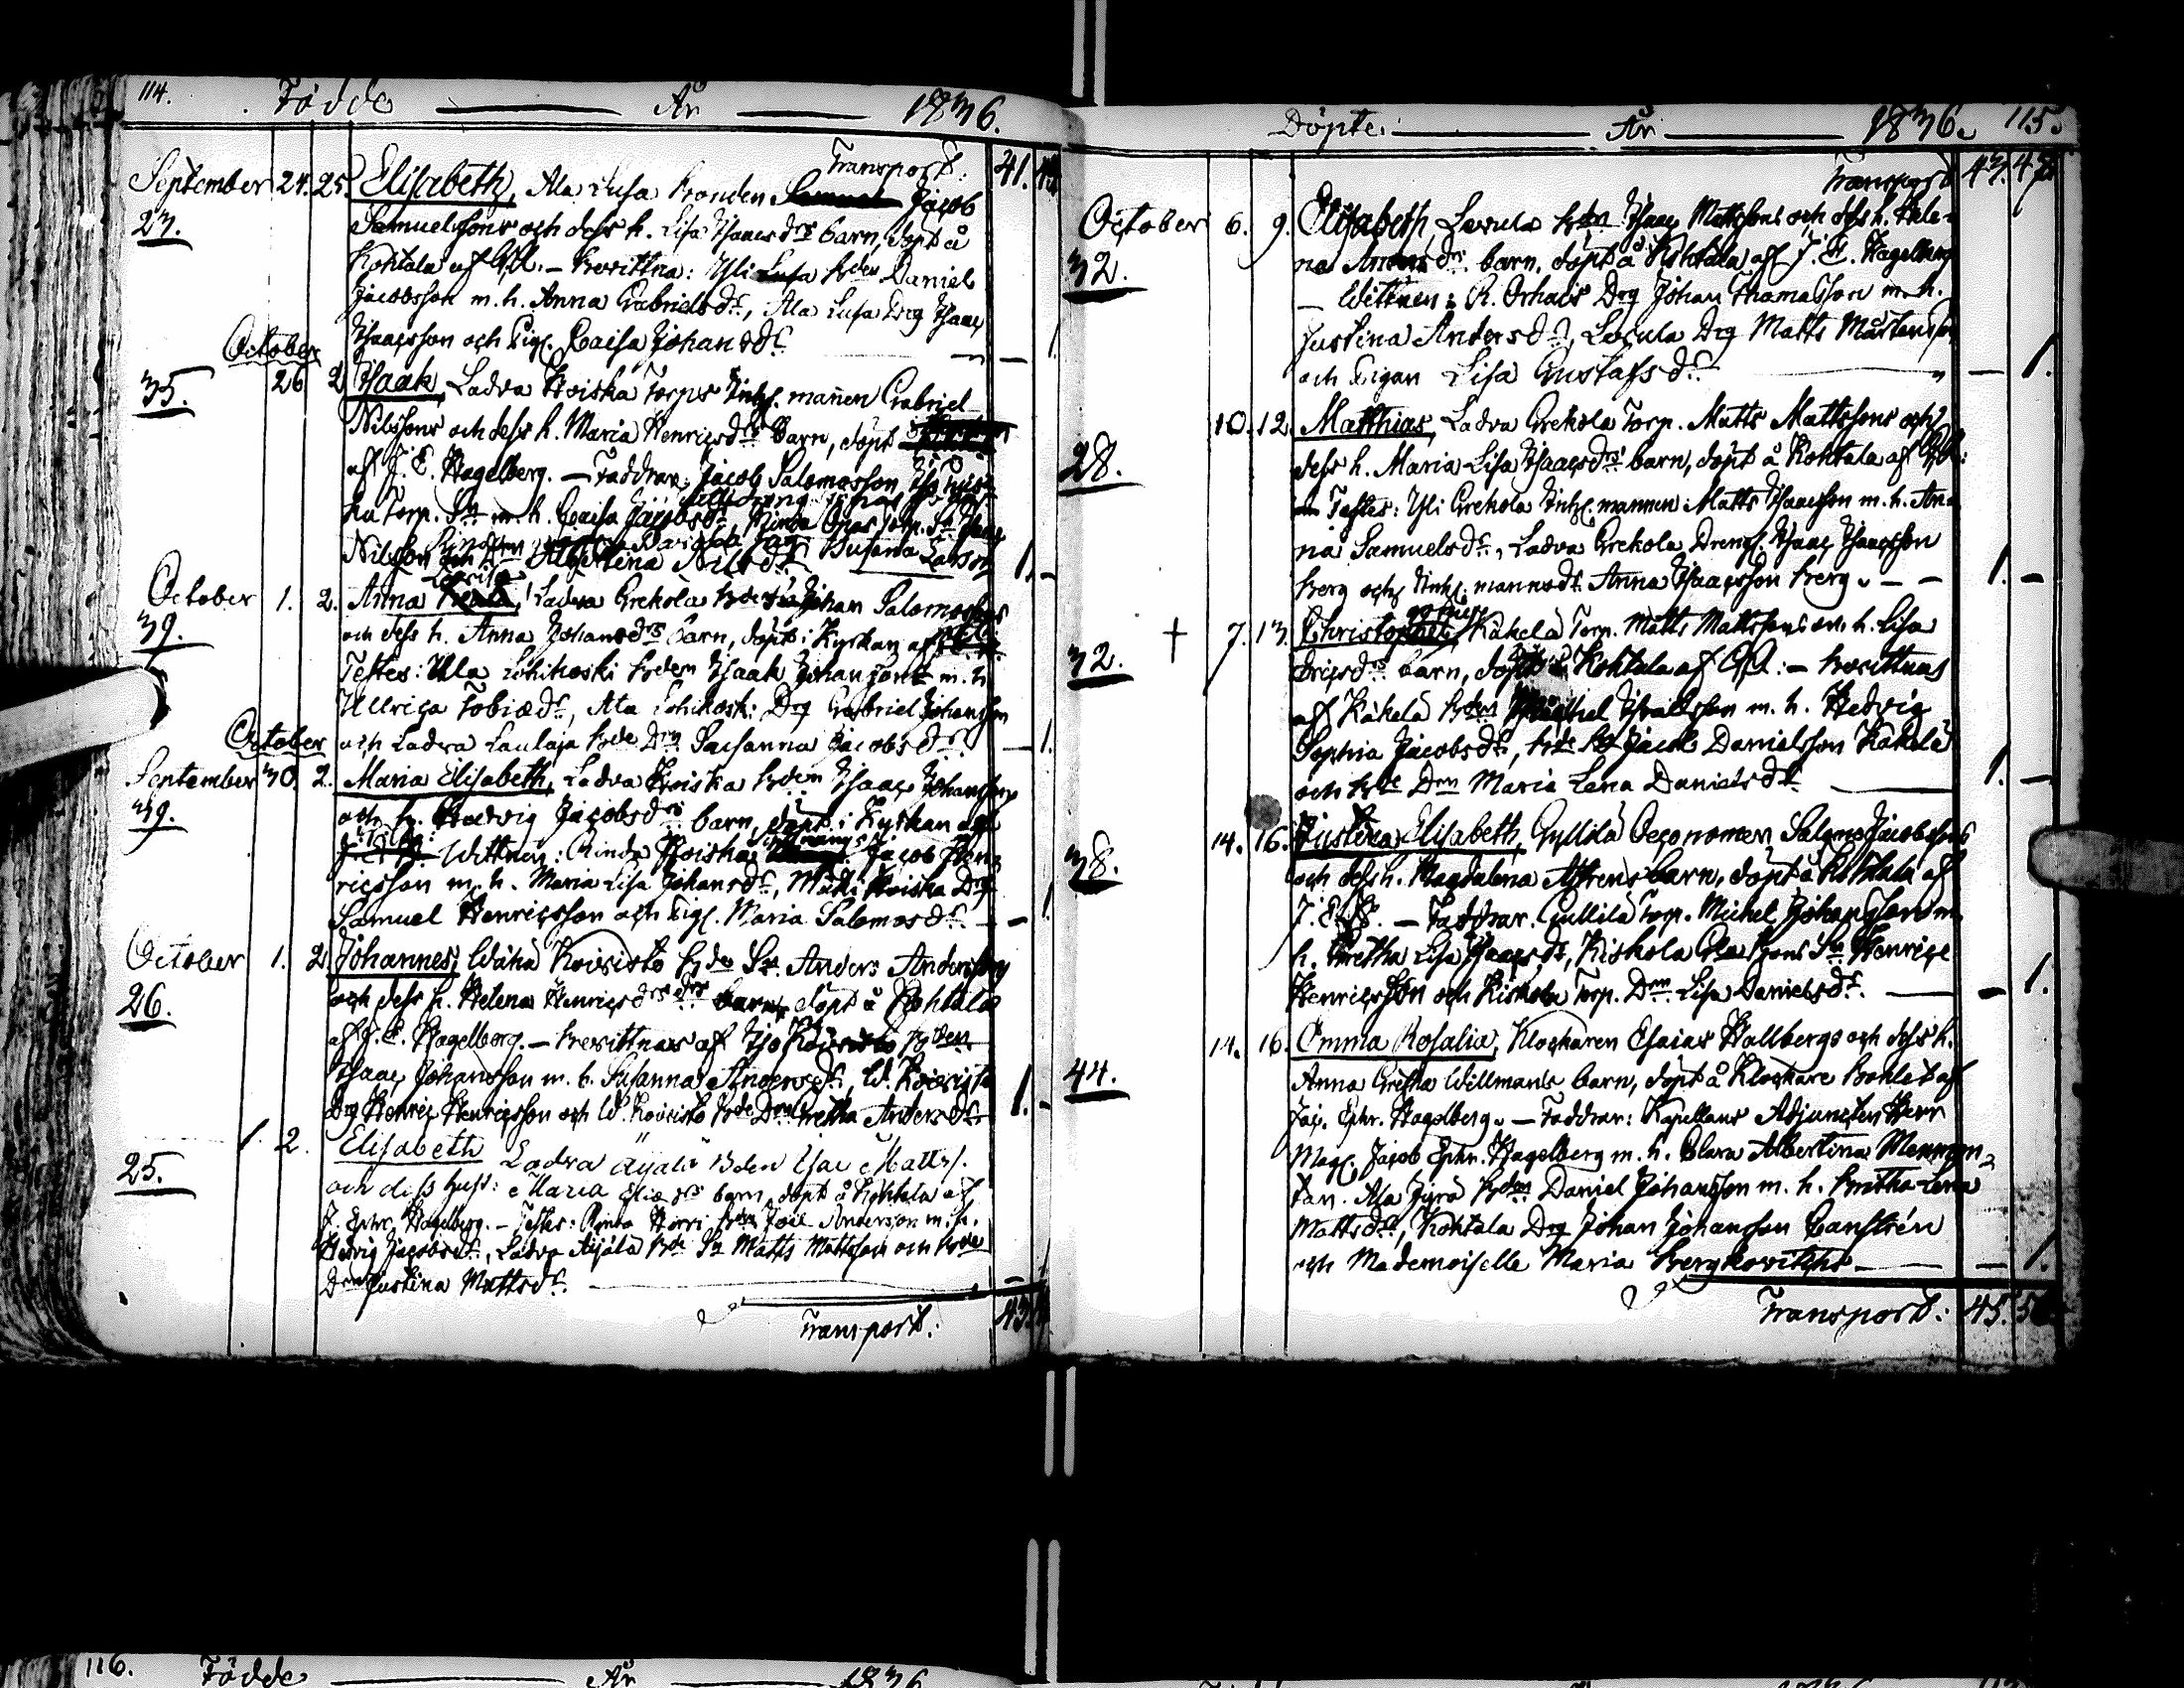 114. Födde År 1836.
Transport: 41.
September 24. 25. Elisabeth, Ala Lusa Bonden Jacob
23. Samuelssons och dess h. Lisa Isaacs drs barn, döpt å
Kohtala af Bevittna: Yli Lusa bden Daniel
Jacobsson m. h. Anna Gabrielsdr, Ala Lusa Drg Isaac
Isaacsson och Pig. Caisa Johansdr 1
October
35. 26 2 Isaak, Ladva Koiska Torps Inh. mannen Gabriel
Nilssons och dess h. Maria Henricsdrs barn, döpt
af J. E. Hagelberg. — Faddrar: Jacob Salomosson
Torp. Sn m. h. Caisa Jacobsdr, Rinda Torp. Sn Isaac
Nilsson Albertina Nilsdr Susanna Larsson 1. -
October 1. 2. Anna Lovisa, Ladva Grekola Johan Salomossons
39. och dess h. Anna Johansdrs barn, döpt i Kyrkan af
Testes: Ula Lohikoski bden Isaak Johansson m. h.
Ullrica Tobiædr, Ala Lohikoski Drg Gabriel Johansson
och Ladva Laulaja bde Drn Susanna Jacobsdr — 1.
October
September 30. 2. Maria Elisabeth, Ladva Koiska bden Isaac Johanssons
39. och h. Hedvig Jacobsdrs barn, döpt i Kyrkan af
J. E. H. Wittnen: Rinda Koiska Jacob Hen-
ricsson m. h. Maria Lisa Johansdr, Matti Koiska Drg
Samuel Henricsson och Pig. Maria Salomosdr. - 1
October 1. 2 Johannes, Wähä Koivisto bde Sn Anders Anderssons
26. och dess h. Helena Henricsdrs barn, döpt å Kohtala
af J. E. Hagelberg. — Bevittnas af Iso Koivisto bden
Isaac Johansson m. h. Susanna Andersdr, W. Koivisto
Drg Henric Henricsson och W. Koivisto bde Drn Gretha Andersdr 1. -
1. 2. Elisabeth Ladva Äijälä Bden Isac Matts.
25. och diss hust: Maria Eliæ drs barn, döpt å Kohtala af
J. Ephr. Hagelberg. — Testes: Rinda Horri bden Joel Andersson m. h.
Hedvig Jacobsdr, Ladva Äijälä bde Sn Matts Mattsson och bde
Drn Justina Mattsdr. - 1
Transport: 43.
Döpte. År 1836. 115.
Transport 43. 47
October 6. 9. Elisabeth, Levula bden Isaac Mattssons och dess h. Hele-
32. na Andersdrs barn, döpt å Kohtala af J. E. Hagelberg
— Wittnen: R. Orhais Drg Johan Thomasson m. h.
Justina Andersdr, Levula Drg Matts Mårtensson
och Pigan Lisa Gustafsdr. — 1.
10. 12. Matthias, Ladva Grekola Torp. Matts Mattssons och
28. dess h. Maria Lisa Isaacsdrs barn, döpt å Kohtala af
Testes: Yli Grekola Inh. mannen Matts Isaacsson m. h. An-
na Samuelsdr, Ladva Grekola Dreng. Isaac Isaacsson
Berg och Inh. mannsdr. Anna Isaacsson Berg. — — 1. —
† 7. 13. Christopher, Käkelä Torp. Matts Mattssons m. h. Lisa
32. Ericsdrs barn, döpt å Kohtala af — Bevittnas
af Käkelä bden Michel Israelsson m. h. Hedvig
Sophia Jacobsdr, bde Sn Jacob Danielsson Käkelä
och bde Drn Maria Lena Danielsdr — 1. —
14. 16. Justina Elisabeth, Gyllilä Oeconomen Salomo Jacobssons
38. och dess h. Magdalena Ahrens barn, döpt å Kohtala af
J. E. H. — Faddrar. Gyllilä Torp. Michel Johansson m.
h. Gretha Lisa Isaacsdr, Kiskola Sn Henric
Henricsson och Kiskola Torp. Drn. Lisa Danielsdr. — 1.
14. 16. Emma Rosalia, Klockaren Esaias Hallbergs och dess h.
44. Anna Gretha Willmans barn, döpt å Klockare Bohlet af
Jac. Ephr. Hagelberg. — Faddrar: Kapellans Adjuncten Herr
Mag. Jacob Ephr. Hagelberg m. h. Clara Albertina
Ala Jyrä bden Daniel Johansson m. h. Britha Lena
Mattsdr, Kohtala Drg Johan Johansson Canstrén
och Mademoiselle Maria Bergkovitchs — — 1.
Transport: 45. 50.
116. Födde År 1836